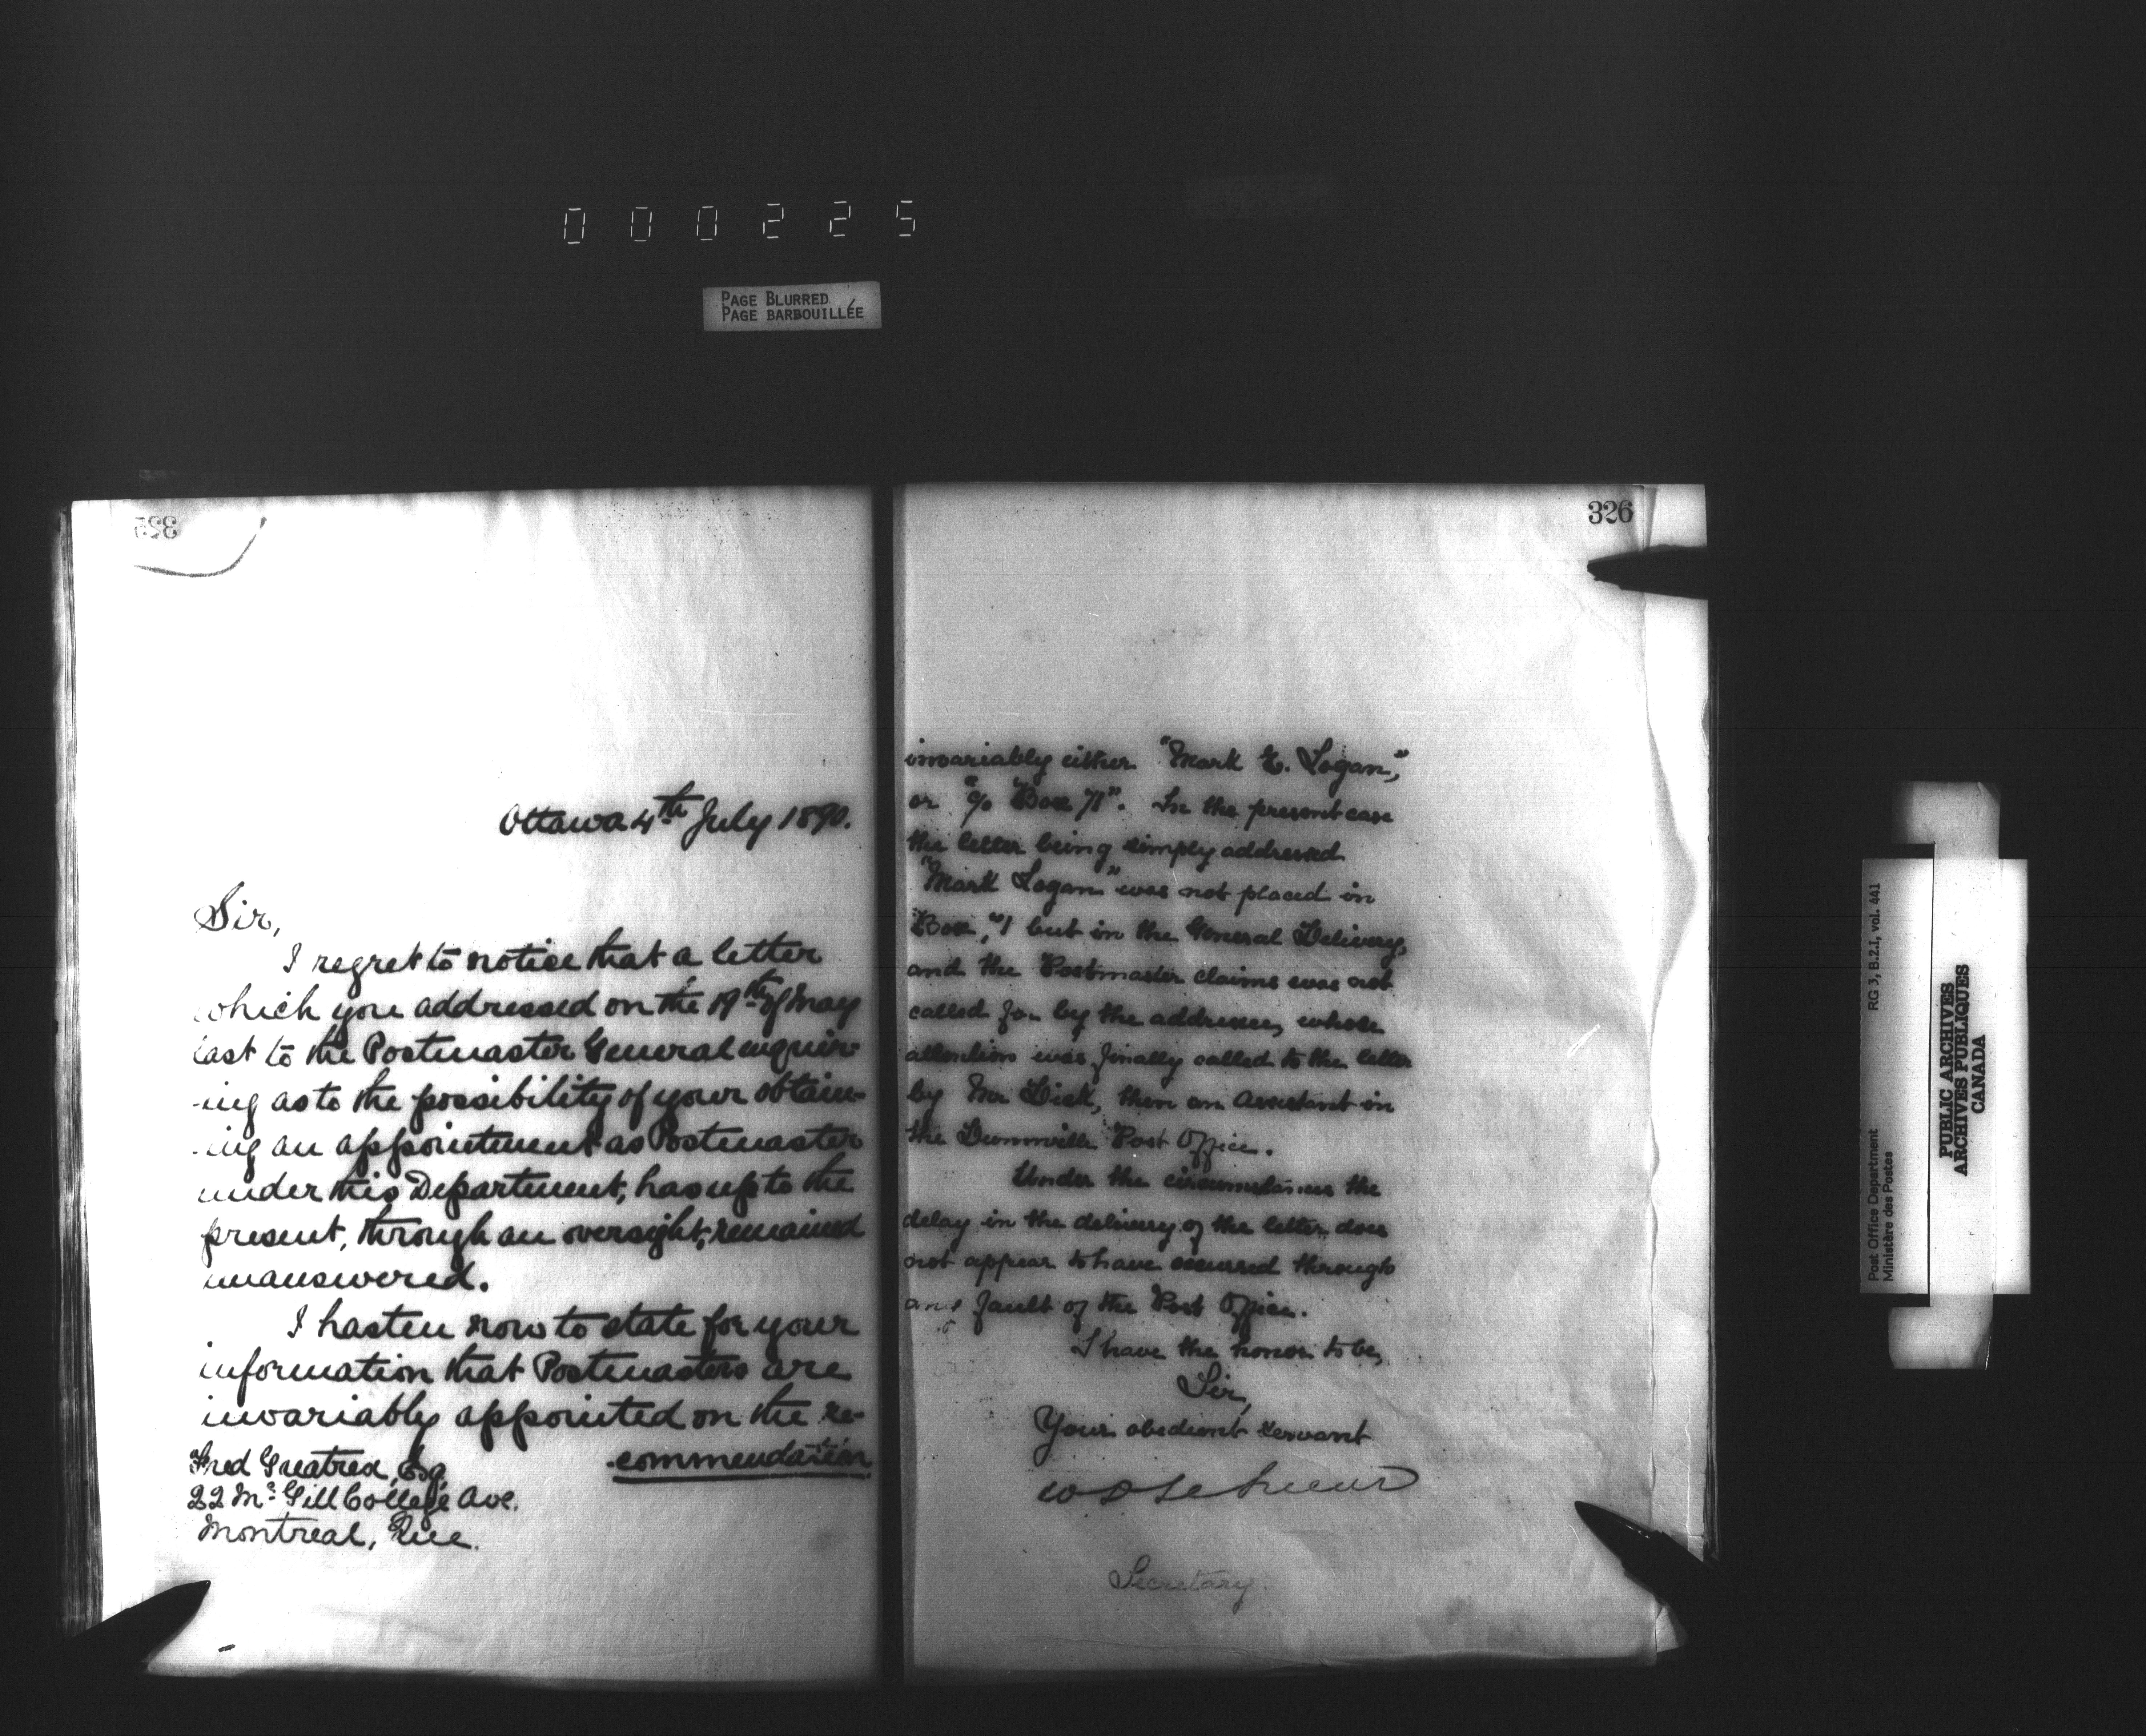 000225
PAGE BLURRED
PAGE BARBOUILLÉE
325
Ottawa 4th July 1890.
Sir,
I regret to notice that a letter
which you addressed on the 19th of May
last to the Postmaster General enquir-
-ing as to the possibility of your obtain-
-ing an appointment as Postmaster
under this Department, has up to the
present, through an oversight, remained
unanswered.
I hasten now to state for your
information that Postmasters are
invariably appointed on the re-
-commendation
Fred Greatrex, Esq
22 McGill College Ave.
Montreal, Que.
326
invariably either "Mark E. Logan,"
or "c/o Box 71". In the present case
the letter being simply addressed
"Mark Logan" was not placed in
Box 71 but in the General Delivery,
and the Postmaster claims was not
called for by the addressee, whose
attention was finally called to the letter
by Mr Dick, then an Assistant in
the Dunnville Post Office.
Under the circumstances the
delay in the delivery of the letter does
not appear to have occurred through
any fault of the Post Office.
I have the honor to be,
Sir,
Your obedient servant
Secretary
Post Office Department RG 3, B.2.I, vol. 441
Ministère des Postes
PUBLIC ARCHIVES
ARCHIVES PUBLIQUES
CANADA